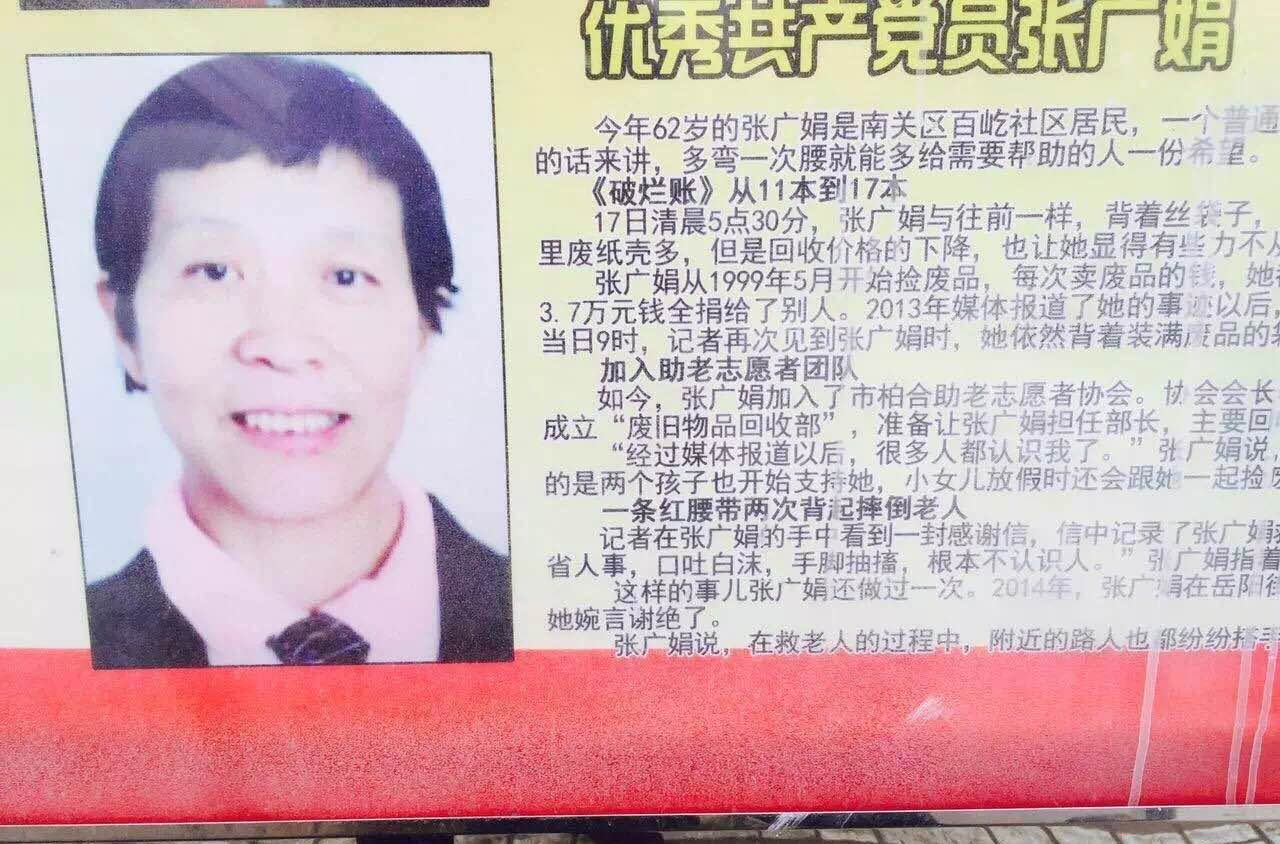 优秀共产党员张广娟
今年62岁的张广娟是南关区百屹社区居民，一个普通
的话来讲，多弯一次腰就能多给需要帮助的人一份希望。
《破烂账》从11本到17本
17日清晨5点30分，张广娟与往前一样，背着丝袋子，
里废纸壳多，但是回收价格的下降，也让她显得有些力不从
张广娟从1999年5月开始捡废品，每次卖废品的钱，她
3.7万元钱全捐给了别人。2013年媒体报道了她的事迹以后，
当日9时，记者再次见到张广娟时，她依然背着装满废品的
加入助老志愿者团队
如今，张广娟加入了市柏合助老志愿者协会。协会会长
成立“废旧物品回收部”，准备让张广娟担任部长，主要回
“经过媒体报道以后，很多人都认识我了。”张广娟说，
的是两个孩子也开始支持她，小女儿放假时还会跟她一起捡废
一条红腰带两次背起摔倒老人
记者在张广娟的手中看到一封感谢信，信中记录了张广娟
省人事，口吐白沫，手脚抽搐，根本不认识人。”张广娟指着
这样的事儿张广娟还做过一次。2014年，张广娟在岳阳街
她婉言谢绝了。
张广娟说，在救老人的过程中，附近的路人也都纷纷搭手